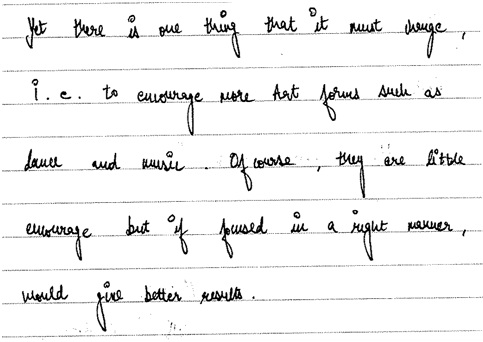 Yet there is one thing that it must change,
i.e. to encourage more Art forms such as
dance and music. Of course, they are little
encourage but if focused in a right manner,
would give better results.